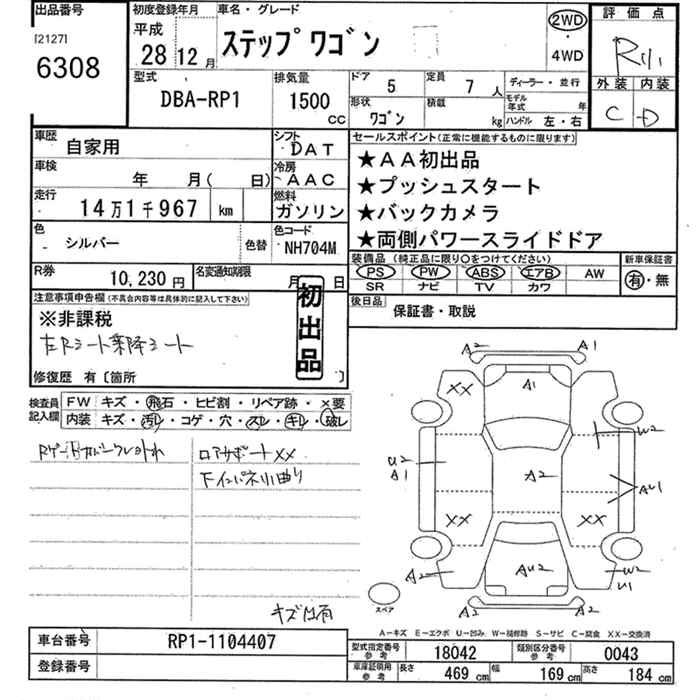 出品番号
[2127]
6308
初度登録年月
平成
28年12月
車名・グレード
ステップワゴン
2WD
4WD
評価点
R
外装 内装
C D
型式
DBA-RP1
排気量
1500
CC
ドア
5
定員
7人
形状
ワゴン
積載
kg
ディーラー・並行
モデル年式
年
ハンドル 左・右
車歴
自家用
シフト
DAT
車検
年 月( 日)
冷房
AAC
走行
14万1千967 km
燃料
ガソリン
色
シルバー
色替
色コード
NH704M
R券
10,230円
名変通知期限
月 日
セールスポイント(正常に機能するものに限ります)
★AA初出品
★プッシュスタート
★バックカメラ
★両側パワースライドドア
装備品(純正品に限り○をつけてください)
PS PW ABS エアB AW
SR ナビ TV カワ
新車保証書
有・無
後日品
保証書・取説
注意事項申告欄(不具合内容等は具体的に記入して下さい)
※非課税
左Rシート乗降シート
初出品
修復歴 有〔箇所 〕
検査員記入欄
FW キズ・飛石・ヒビ割・リペア跡・×要
内装 キズ・汚レ・コゲ・穴・スレ・キレ・破レ
ロアサポートXX
下インパネ小曲り
キズ凹有
A2 A1
XX
A1
W2
U2
A1
A2
AU1
XX
XX
A2
AU2
W2
U1
A2
A2
スペア
A-キズ E-エクボ U-凹み W-補修跡 S-サビ C-腐食 XX-交換済
車台番号
RP1-1104407
登録番号
型式指定番号
参考
18042
類別区分番号
参考
0043
車庫証明用
参考
長さ
469cm
幅
169cm
高さ
184cm